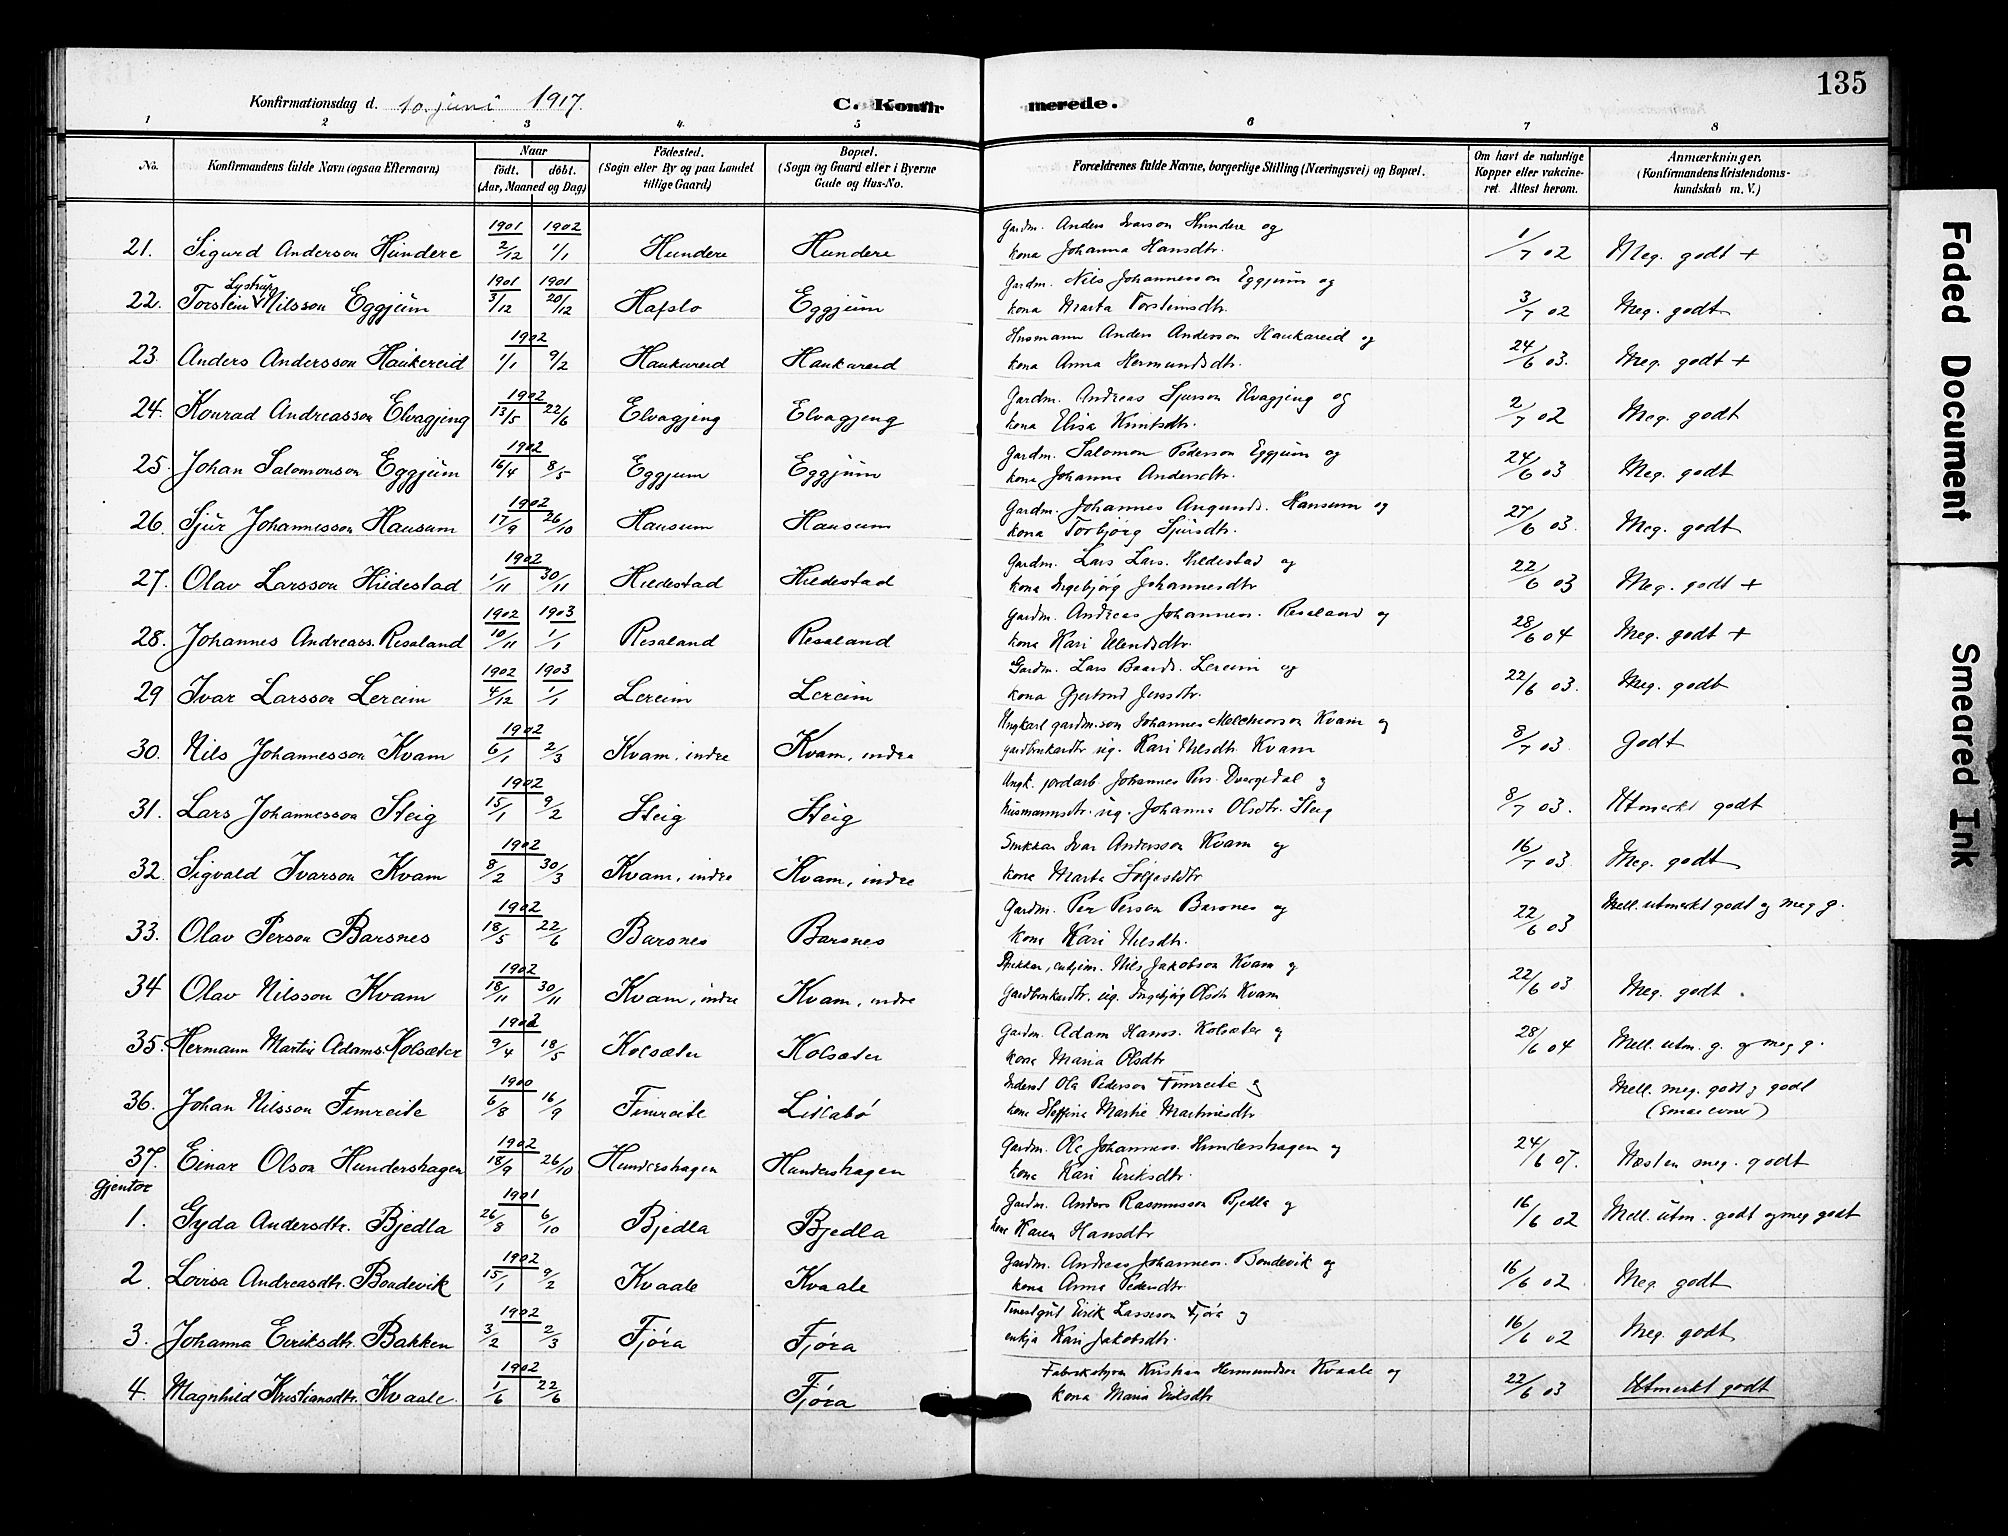 135
Konfirmationsdag d. 10. juni 1917.
C. Konfirmerede.
1 2 3 4. 5 6 7 8
No. Konfirmandens fulde Navn (ogsaa Efternavn)
Naar født. døbt. (Aar, Maaned og Dag)
Fødested. (Sogn eller By og paa Landet tillige Gaard)
Bopæl. (Sogn og Gaard eller i Byerne Gade og Hus-No.
Forældrenes fulde Navne, borgerlige Stilling (Næringsvei) og Bopæl.
Om havt de naturlige Kopper eller vakcineret. Attest herom.
Anmærkninger. (Konfirmandens Kristendomskundskab m. V.)
21. Sigurd Anderson Hundere 1901 2/12 1902 1/1 Hundere Hundere Gardm. Anders Ivarson Hundere og kona Johanna Hansdtr. 1/7 02 Meg. godt +
22. Torstein Lystrup Nilsson Eggjum 1901 3/12 1901 20/12 Hafslo Eggjum Gardm. Nils Johannesson Eggjum og kona Marta Torsteinsdtr. 3/7 02 Meg. godt
23. Anders Andersson Haukereid 1902 1/1 9/2 Haukareid Haukareid Husmann Anders Anderson Haukareid og kona Anna Hermundsdtr. 24/6 03. Meg. godt +
24. Konrad Andreasson Elvagjeng 1902 13/5 22/6 Elvagjeng Elvagjeng Gardm. Andreas Sjurson Elvagjeng og kona Elisa Knutsdtr. 2/7 02 Meg. godt
25. Johan Salomonson Eggjum 1902 16/4 8/5 Eggjum Eggjum Gardm. Salomon Pederson Eggjum og kona Johanna Andersdtr. 24/6 03 Meg. godt
26. Sjur Johannesson Hausum 1902 17/9 26/10 Hausum Hausum Gardm. Johannes Aagunds. Hausum og kona Torbjørg Sjursdtr. 27/6 03. Meg. godt
27. Olav Larsson Hildestad 1902 1/11 30/11 Hildestad Hildestad Gardm. Lars Lars. Hildestad og kona Ingebjørg Johannesdtr 22/6 03 Meg. godt +
28. Johannes Andreass. Resaland 1902 10/11 1903 1/1 Resaland Resaland Gardm. Andreas Johanness. Resaland og kona Kari Elendsdtr. 28/6 04 Meg. godt +
29 Ivar Larsson Lereim 1902 4/12 1903 1/1 Lereim Lereim Gardm. Lars Baards. Lereim og kona Gjertrud Jensdtr. 22/6 03. Meg. godt
30. Nils Johannesson Kvam 1902 6/1 2/3 Kvam, indre Kvam, indre Ungkarl gardm.son Johannes Melcheorson Kvam og gardbrukardtr. ug. Kari Nilsdtr. Kvam 8/7 03. Godt
31. Lars Johannesson Steig 1902 15/1 9/2 Steig Steig Ungk. jordarb. Johannes Pers. Dvergedal og husmannsdtr. ug. Johanna Olsdtr. Steig 8/7 03. Utmerkt godt
32. Sigvald Ivarson Kvam 1902 8/2 30/3 Kvam, indre Kvam, indre Snikkar Ivar Andersson Kvam og kona Marta Sølfestdtr 16/7 03. Meg. godt
33. Olav Person Barsnes 1902 18/5 22/6 Barsnes Barsnes Gardm. Per Person Barsnes og kona Kari Nilsdtr. 22/6 03 Mell. utmerkt godt og meg g.
34 Olav Nilsson Kvam 1902 18/11 30/11 Kvam, indre Kvam, indre Nils Jakobson Kvam og Gardbrukardtr. ug. Ingebjørg Olsdtr Kvam 22/6 03 Meg. godt.
35. Hermann Martin Adams. Kolsæter 1902 9/4 18/5 Kolsæter Kolsæter Gardm. Adam Hanss. Kolsæter og kona Maria Olsdtr 28/6 04 Mell. utm. g. og meg g.
36. Johan Nilsson Fimreite 1900 6/8 16/9 Fimreite Litlabø Inderst Ola Pederson Fimreite og kona Steffine Martie Martinsdtr Mell. meg. godt og godt (smaa evner)
37. Einar Olson Hundershagen 1902 18/9 26/10 Hundershagen Hundershagen Gardm. Ole Johanness. Hundershagen og kona Kari Eriksdtr. 24/6 07. Næsten meg. godt
Gjentor
1. Gyda Andersdtr. Bjedla 1901 26/8 6/10 Bjedla Bjedla Gardm. Anders Rasmusson Bjedla og kona Karen Hansdtr 16/6 02 Mell. utm. godt og meg godt
2. Lovisa Andreasdtr. Bondevik 1902 15/1 9/2 Kvaale Kvaale Gardm. Andreas Johanness. Bondevik og kona Anna Pedersdtr 16/6 02. Meg. godt
3. Johanna Eiriksdtr. Bakken 1902 3/2 2/3 Fjøra Fjøra Eirik Lasseson Fjøra og enkja Kari Jakobsdtr. 16/6 02 Meg. godt
4. Magnhild Kristiansdtr. Kvaale. 1902 1/6 22/6 Fjøra Kristian Hermundson Kvaale og kona Maria Eriksdtr 22/6 03 Utmerkt godt
Faded Document
Smeared Ink